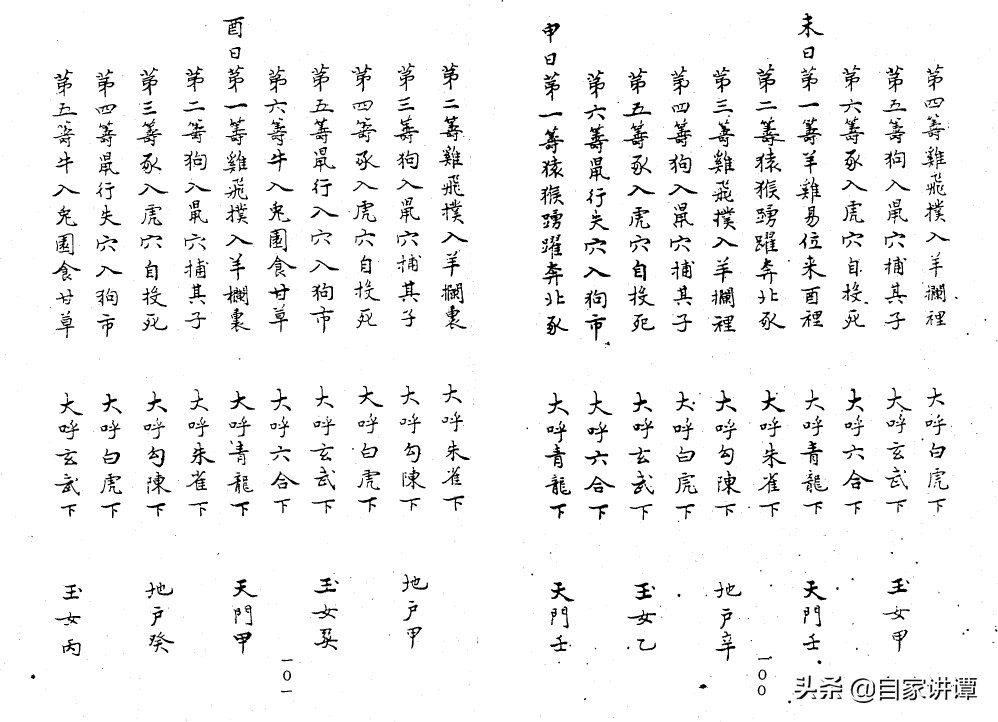 第四籌雞飛撲入羊欄裡　大呼白虎下
第五籌狗入鼠穴捕其子　大呼玄武下　玉女甲
第六籌豕入虎穴自投死　大呼六合下
未日第一籌羊雞易位来酉裡　大呼青龍下　天門壬
第二籌猿猴踴躍奔北豕　大呼朱雀下
第三籌雞飛撲入羊欄裡　大呼勾陳下　地戶辛
第四籌狗入鼠穴捕其子　大呼白虎下
第五籌豕入虎穴自投死　大呼玄武下　玉女乙
第六籌鼠行失穴入狗市　大呼六合下
申日第一籌猿猴踴躍奔北豕　大呼青龍下　天門壬
一〇〇
第二籌雞飛撲入羊欄裏　大呼朱雀下
第三籌狗入鼠穴捕其子　大呼勾陳下　地戶甲
第四籌豕入虎穴自投死　大呼白虎下
第五籌鼠行入穴入狗市　大呼玄武下　玉女
第六籌牛入兔園食甘草　大呼六合下
酉日第一籌雞飛撲入羊欄裏　大呼青龍下　天門甲
第二籌狗入鼠穴捕其子　大呼朱雀下
第三籌豕入虎穴自投死　大呼勾陳下　地戶癸
第四籌鼠行失穴入狗市　大呼白虎下
第五籌牛入兔園食甘草　大呼玄武下　玉女丙
一〇一
头条 @自家讲谭